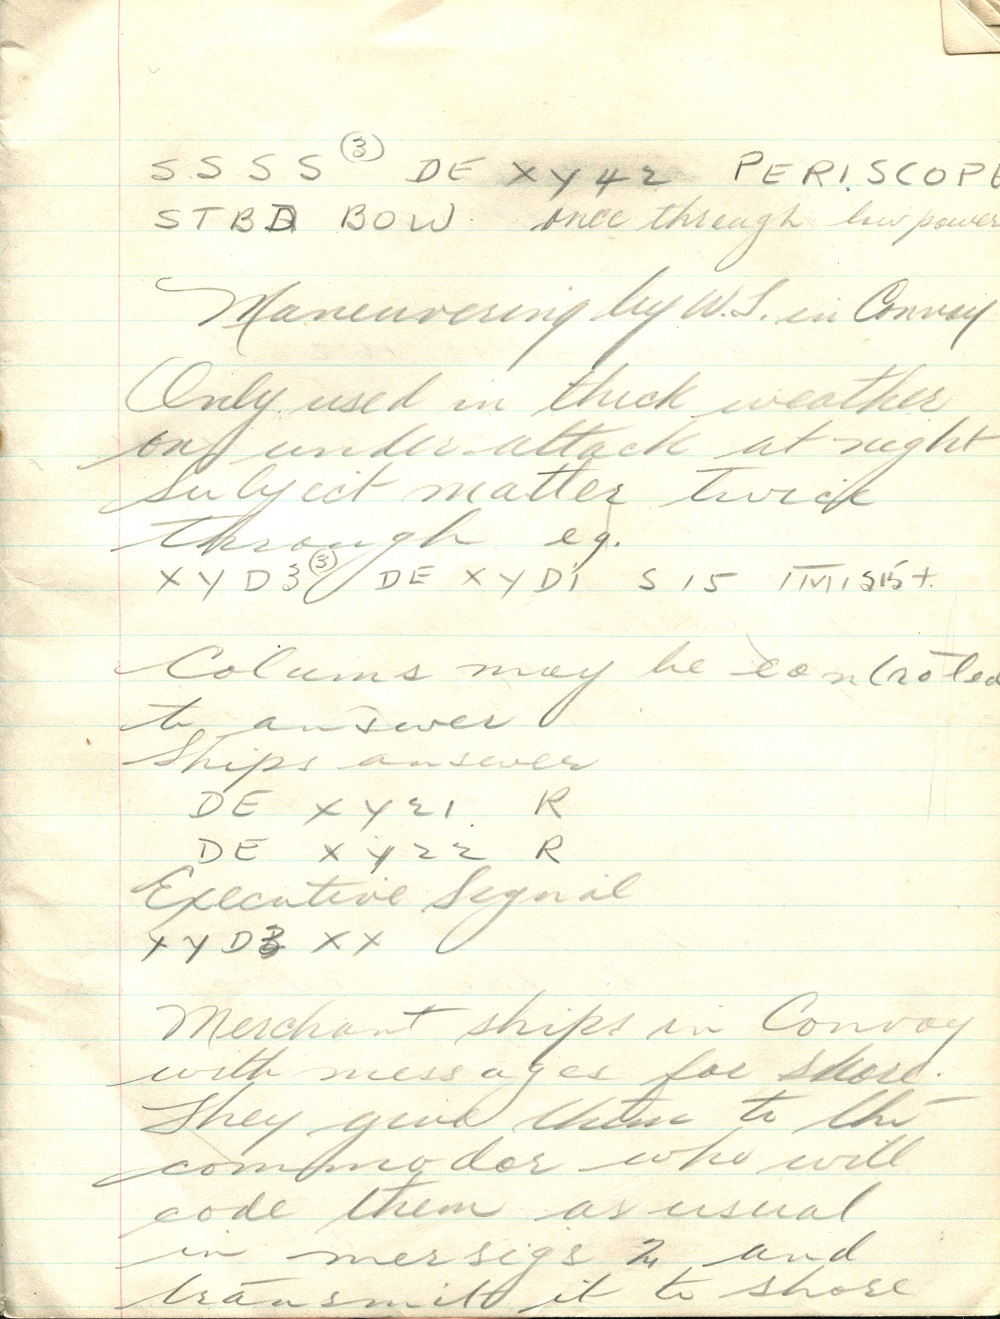 S S S S ③ DE XY42 PERISCOPE
STBD BOW. once through low power
Maneuvering by W.T. in Convoy
Only used in thick weather
or under attack at night
Subject matter twice
through eg.
XYD3 ③ DE XYD1 S 15 IMI S15 +.
Colums may be controled
to answer
Ships answer
DE XY21 R
DE XY22 R
Executive Signal
XYD3 XX
Merchant ships in Convoy
with messages for shore.
They give them to the
commodor who will
code them as usual
in mersigs 2 and
transmit it to shore